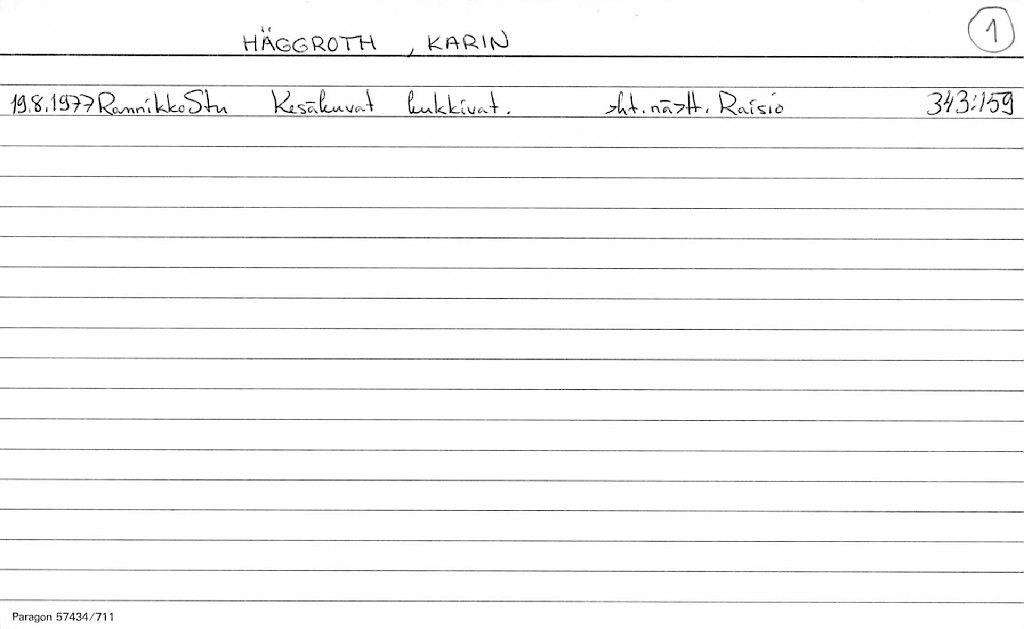 HÄGGROTH , KARIN 1
19.8.1977 RannikkoStu Kesäkuvat kukkivat. yht.näytt. Raisio 343:159
Paragon 57434/711